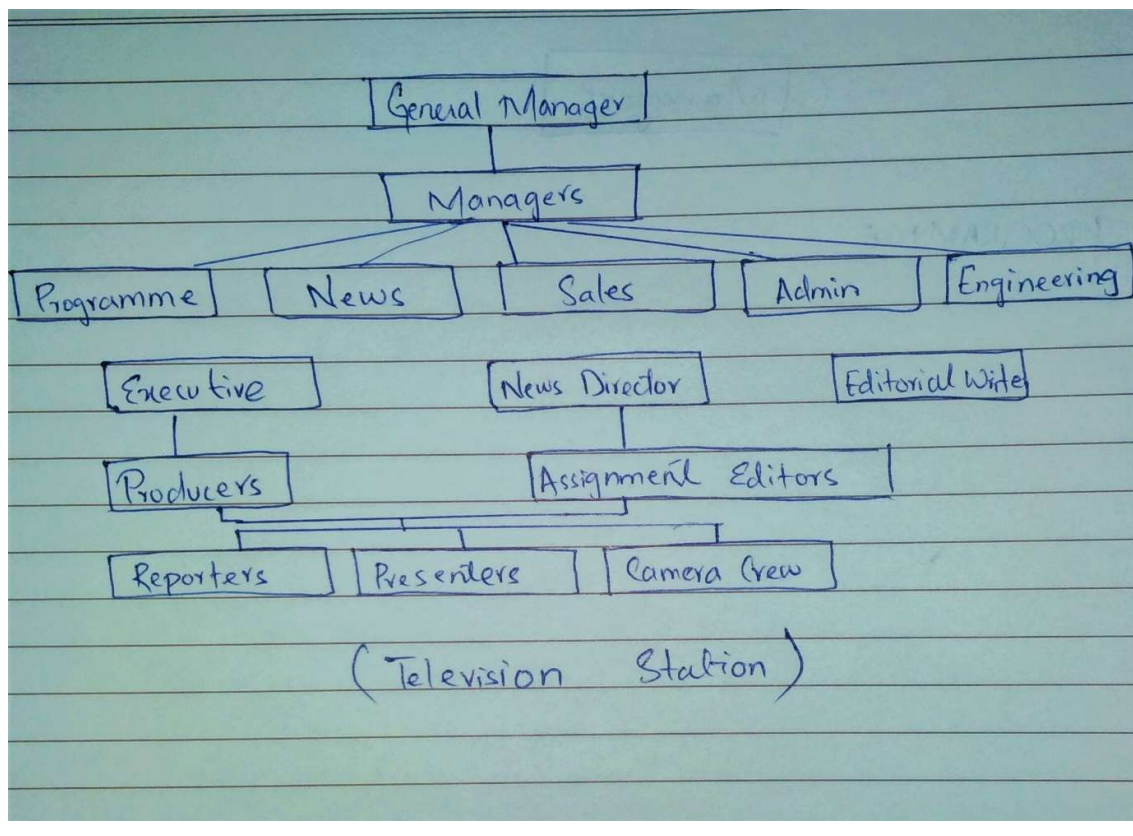 General Manager
Managers
Programme News Sales Admin Engineering
Executive News Director Editorial Write
Producers Assignment Editors
Reporters Presenters Camera Crew
(Television Station)